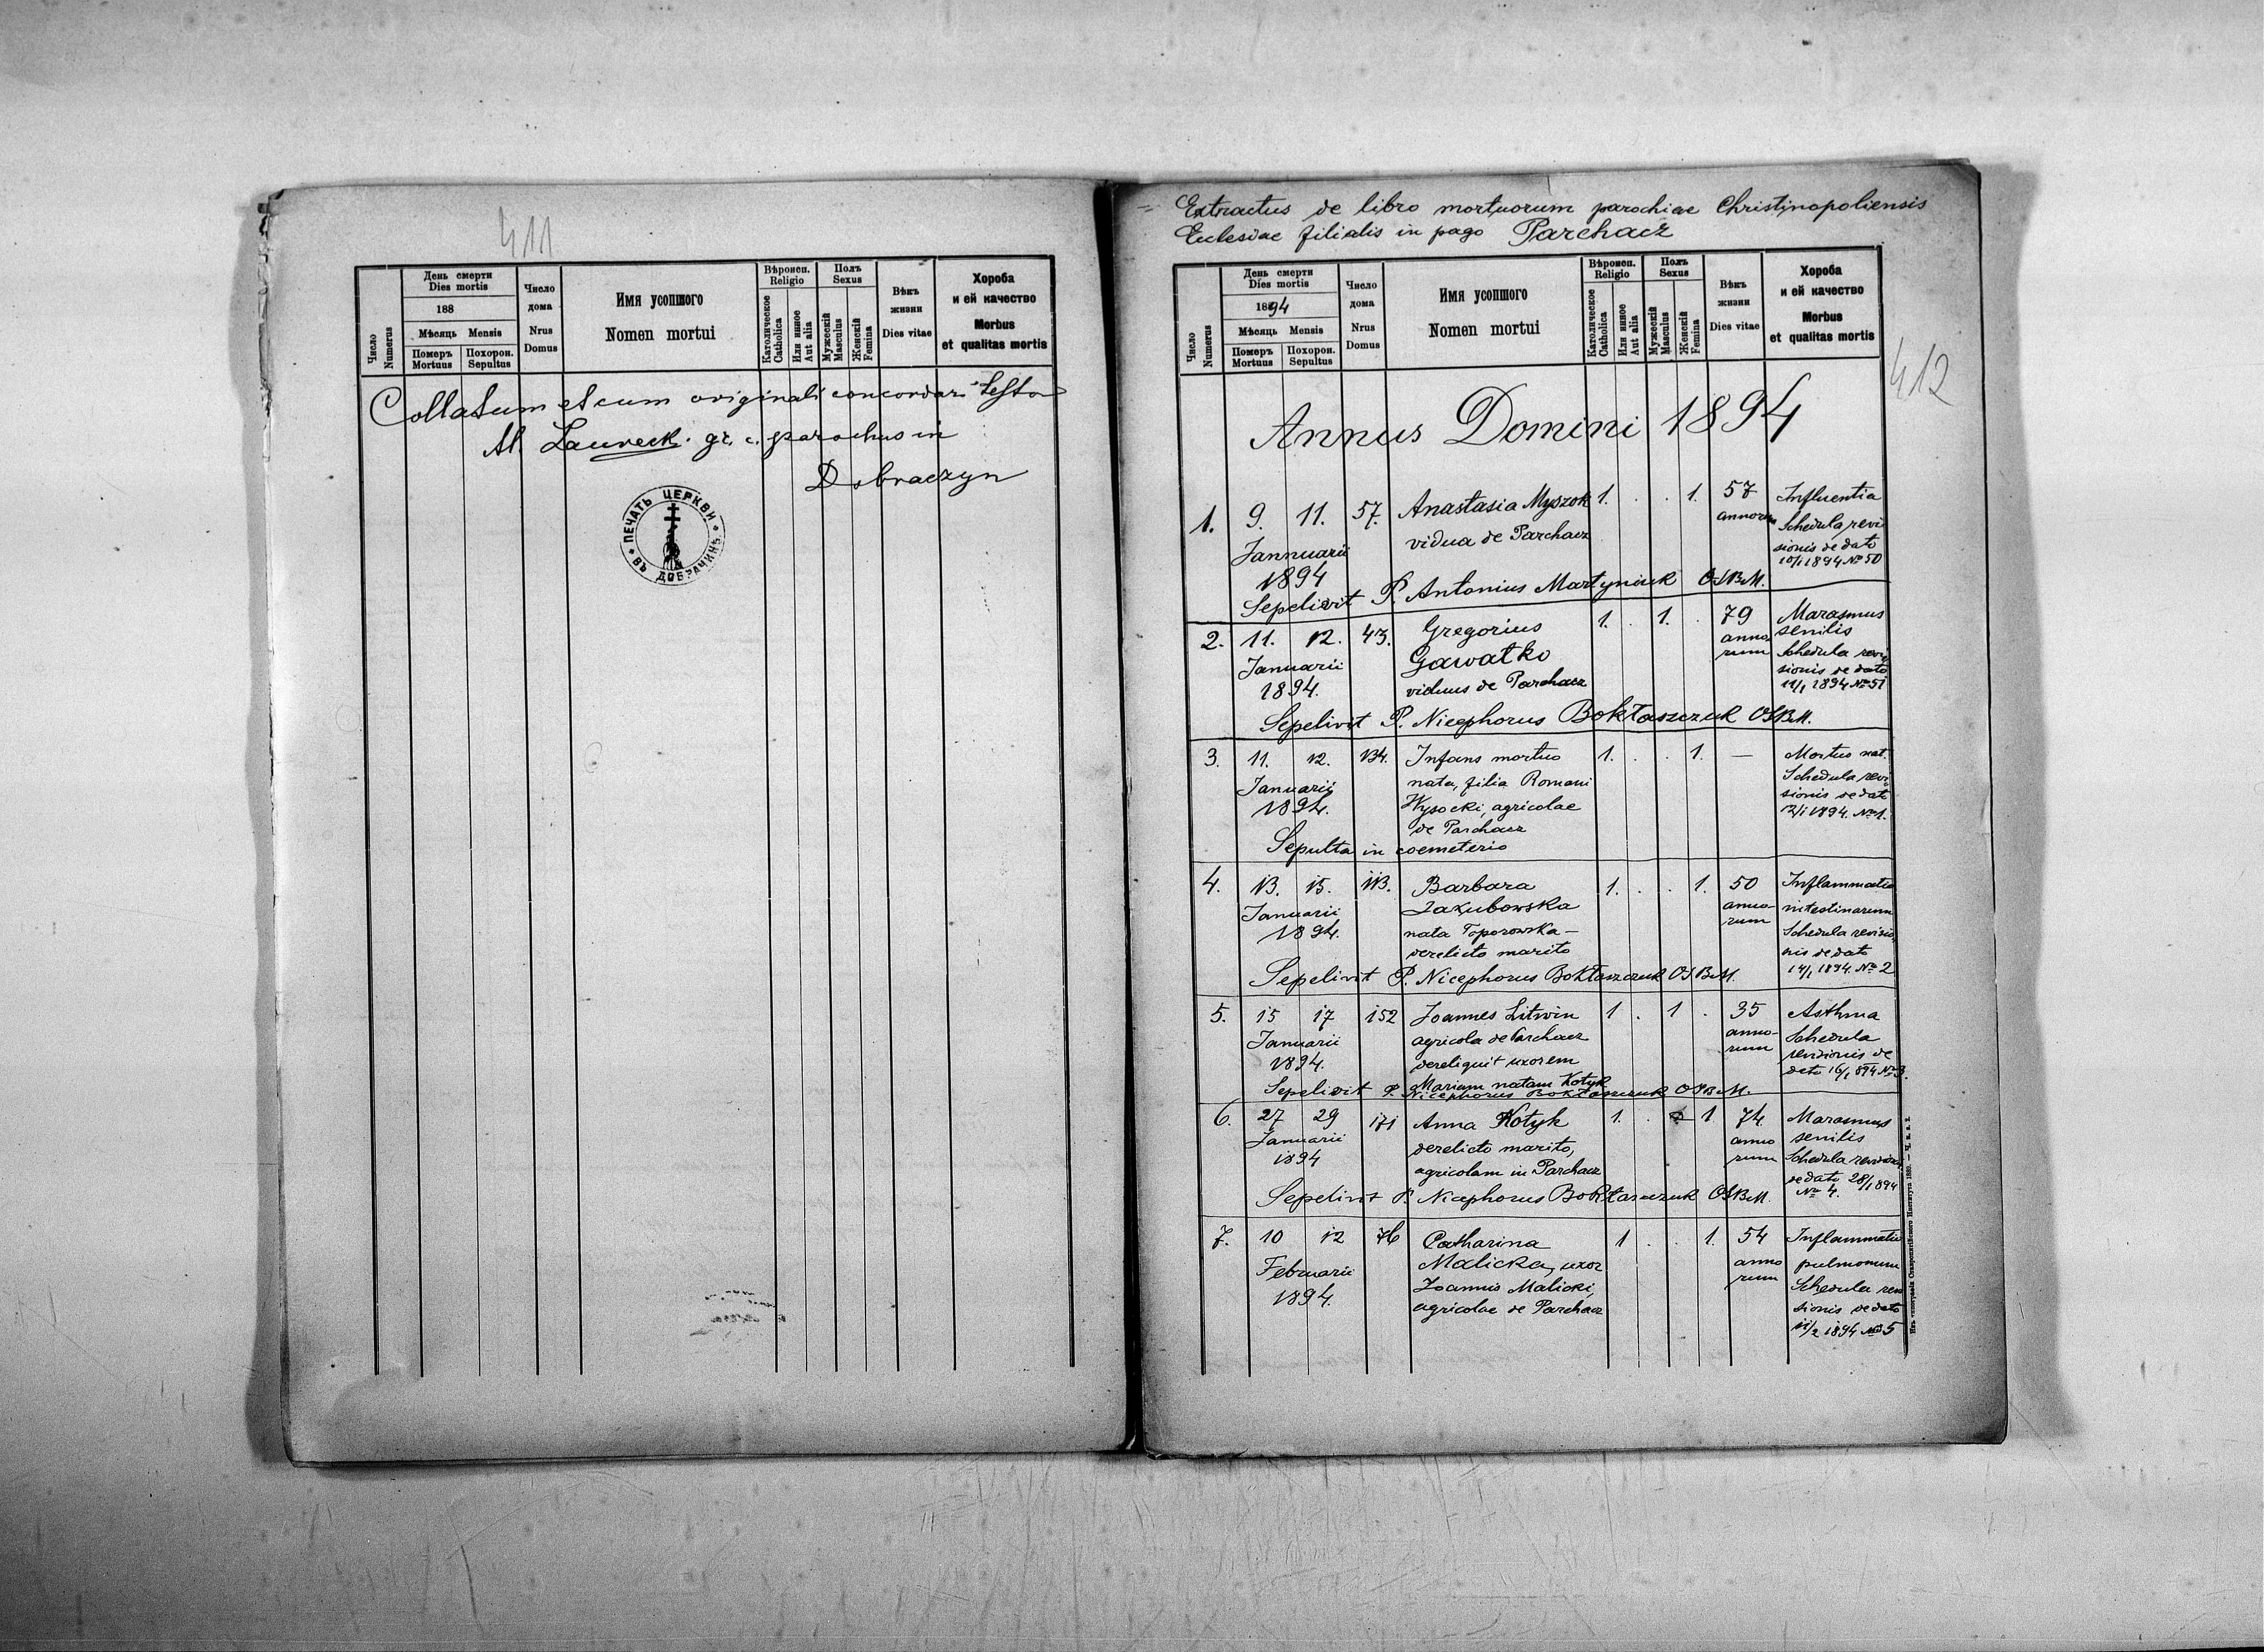 411
Число Numerus
День смерти
Dies mortis
188
Мѣсяць Mensis
Померъ Mortuus
Похорон. Sepultus
Число дома
Nrus Domus
Имя усопшого
Nomen mortui
Вѣроисп. Religio
Католическое Catholica
Или инное Aut alia
Полъ Sexus
Мужескій Masculus
Женскій Femina
Вѣкъ жизни
Dies vitae
Хороба
и ей качество
Morbus
et qualitas mortis
Collatum et cum originali concordare testor
Al. Laureck. gr. c. parochus in
Dobraczyn
ПЕЧАТЬ ЦЕРКВИ
ВЪ ДОБРАЧИНѢ
Extractus de libro mortuorum parochiae Christinopoliensis
Eclesiae filialis in pago Parchacz
412
Число Numerus
День смерти
Dies mortis
1894
Мѣсяць Mensis
Померъ Mortuus
Похорон. Sepultus
Число дома
Nrus Domus
Имя усопшого
Nomen mortui
Вѣроисп. Religio
Католическое Catholica
Или инное Aut alia
Полъ Sexus
Мужескій Masculus
Женскій Femina
Вѣкъ жизни
Dies vitae
Хороба
и ей качество
Morbus
et qualitas mortis
Annus Domini 1894
1. 9. 11. 57. Anastasia Myszok 1. . . 1. 57 Influentia
Jannuarii vidua de Parchacz annorum Schedula revi
1894 sionis de dato
10/1 1894 № 50
Sepelivit P. Antonius Martyniuk OSBM.
2. 11. 12. 43. Gregorius 1. . 1. . 79 Marasmus
Januarii Gawałko anno- senilis
1894. viduus de Parchacz rum Schedula revi
sionis de dato
11/1 1894 № 51
Sepelivit P. Nicephorus Bokłaszczuk OSBM.
3. 11. 12. 134. Infans mortuo 1. . . 1. — Mortuo nat.
Januarii nata, filia Romani Schedula revi
1894. Wysocki, agricolae sionis de dato
de Parchacz 12/1 1894. № 1.
Sepulta in coemeterio
4. 13. 15. 113. Barbara 1. . . 1. 50 Inflammatio
Januarii Zakubowska anno- intestinarum
1894. nata Toporowska – rum Schedula revisio
derelicto marito nis de dato
14/1 1894. № 2
Sepelivit P. Nicephorus Bokłaszczuk OSBM.
5. 15 17 152 Joannes Litwin 1 . 1 . 35 Asthma
Januarii agricola de Parchacz anno- Schedula
1894. dereliquit uxorem rum revisionis de
Mariam natam Kotyk dato 16/1 894 № 3.
Sepelivit P. Nicephorus Bokłaszczuk OSBM.
6. 27 29 171 Anna Kotyk 1. . 1 74 Marasmus
Januarii derelicto marito, anno senilis
1894 agricolam in Parchacz rum Schedula revisionis
de dato 28/1 894
№ 4.
Sepelivit P. Nicephorus Bokłaszczuk OSBM.
7. 10 12 76 Catharina 1 . . 1. 54 Inflammatio
Februarii Malicka, uxor anno pulmonum
1894. Joannis Malicki, rum Schedula revi
agricolae de Parchacz sionis de dato
11/2 1894 № 5